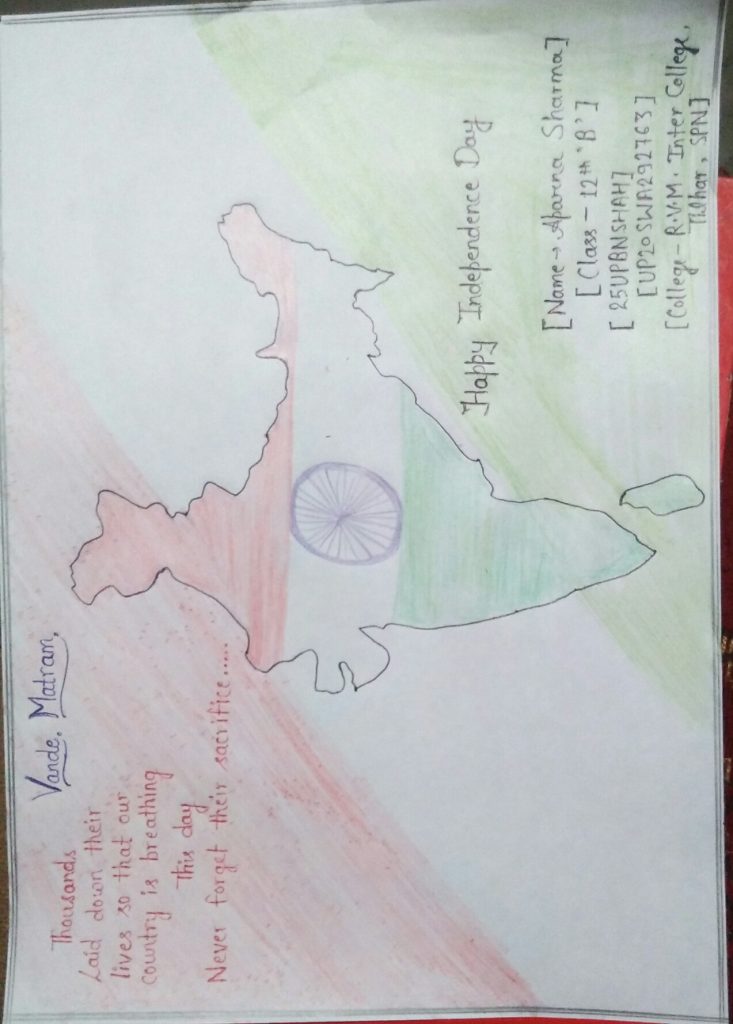 Vande. Matram.
Thousands
Laid down their
lives so that our
country is breathing
This day
Never forget their sacrifice.....
Happy Independence Day
[Name → Aparna Sharma]
[Class - 12th 'B']
[25UPBNSHAH]
[UP20SWA292763]
[College - R.V.M. Inter College,
Tilhar, SPN]